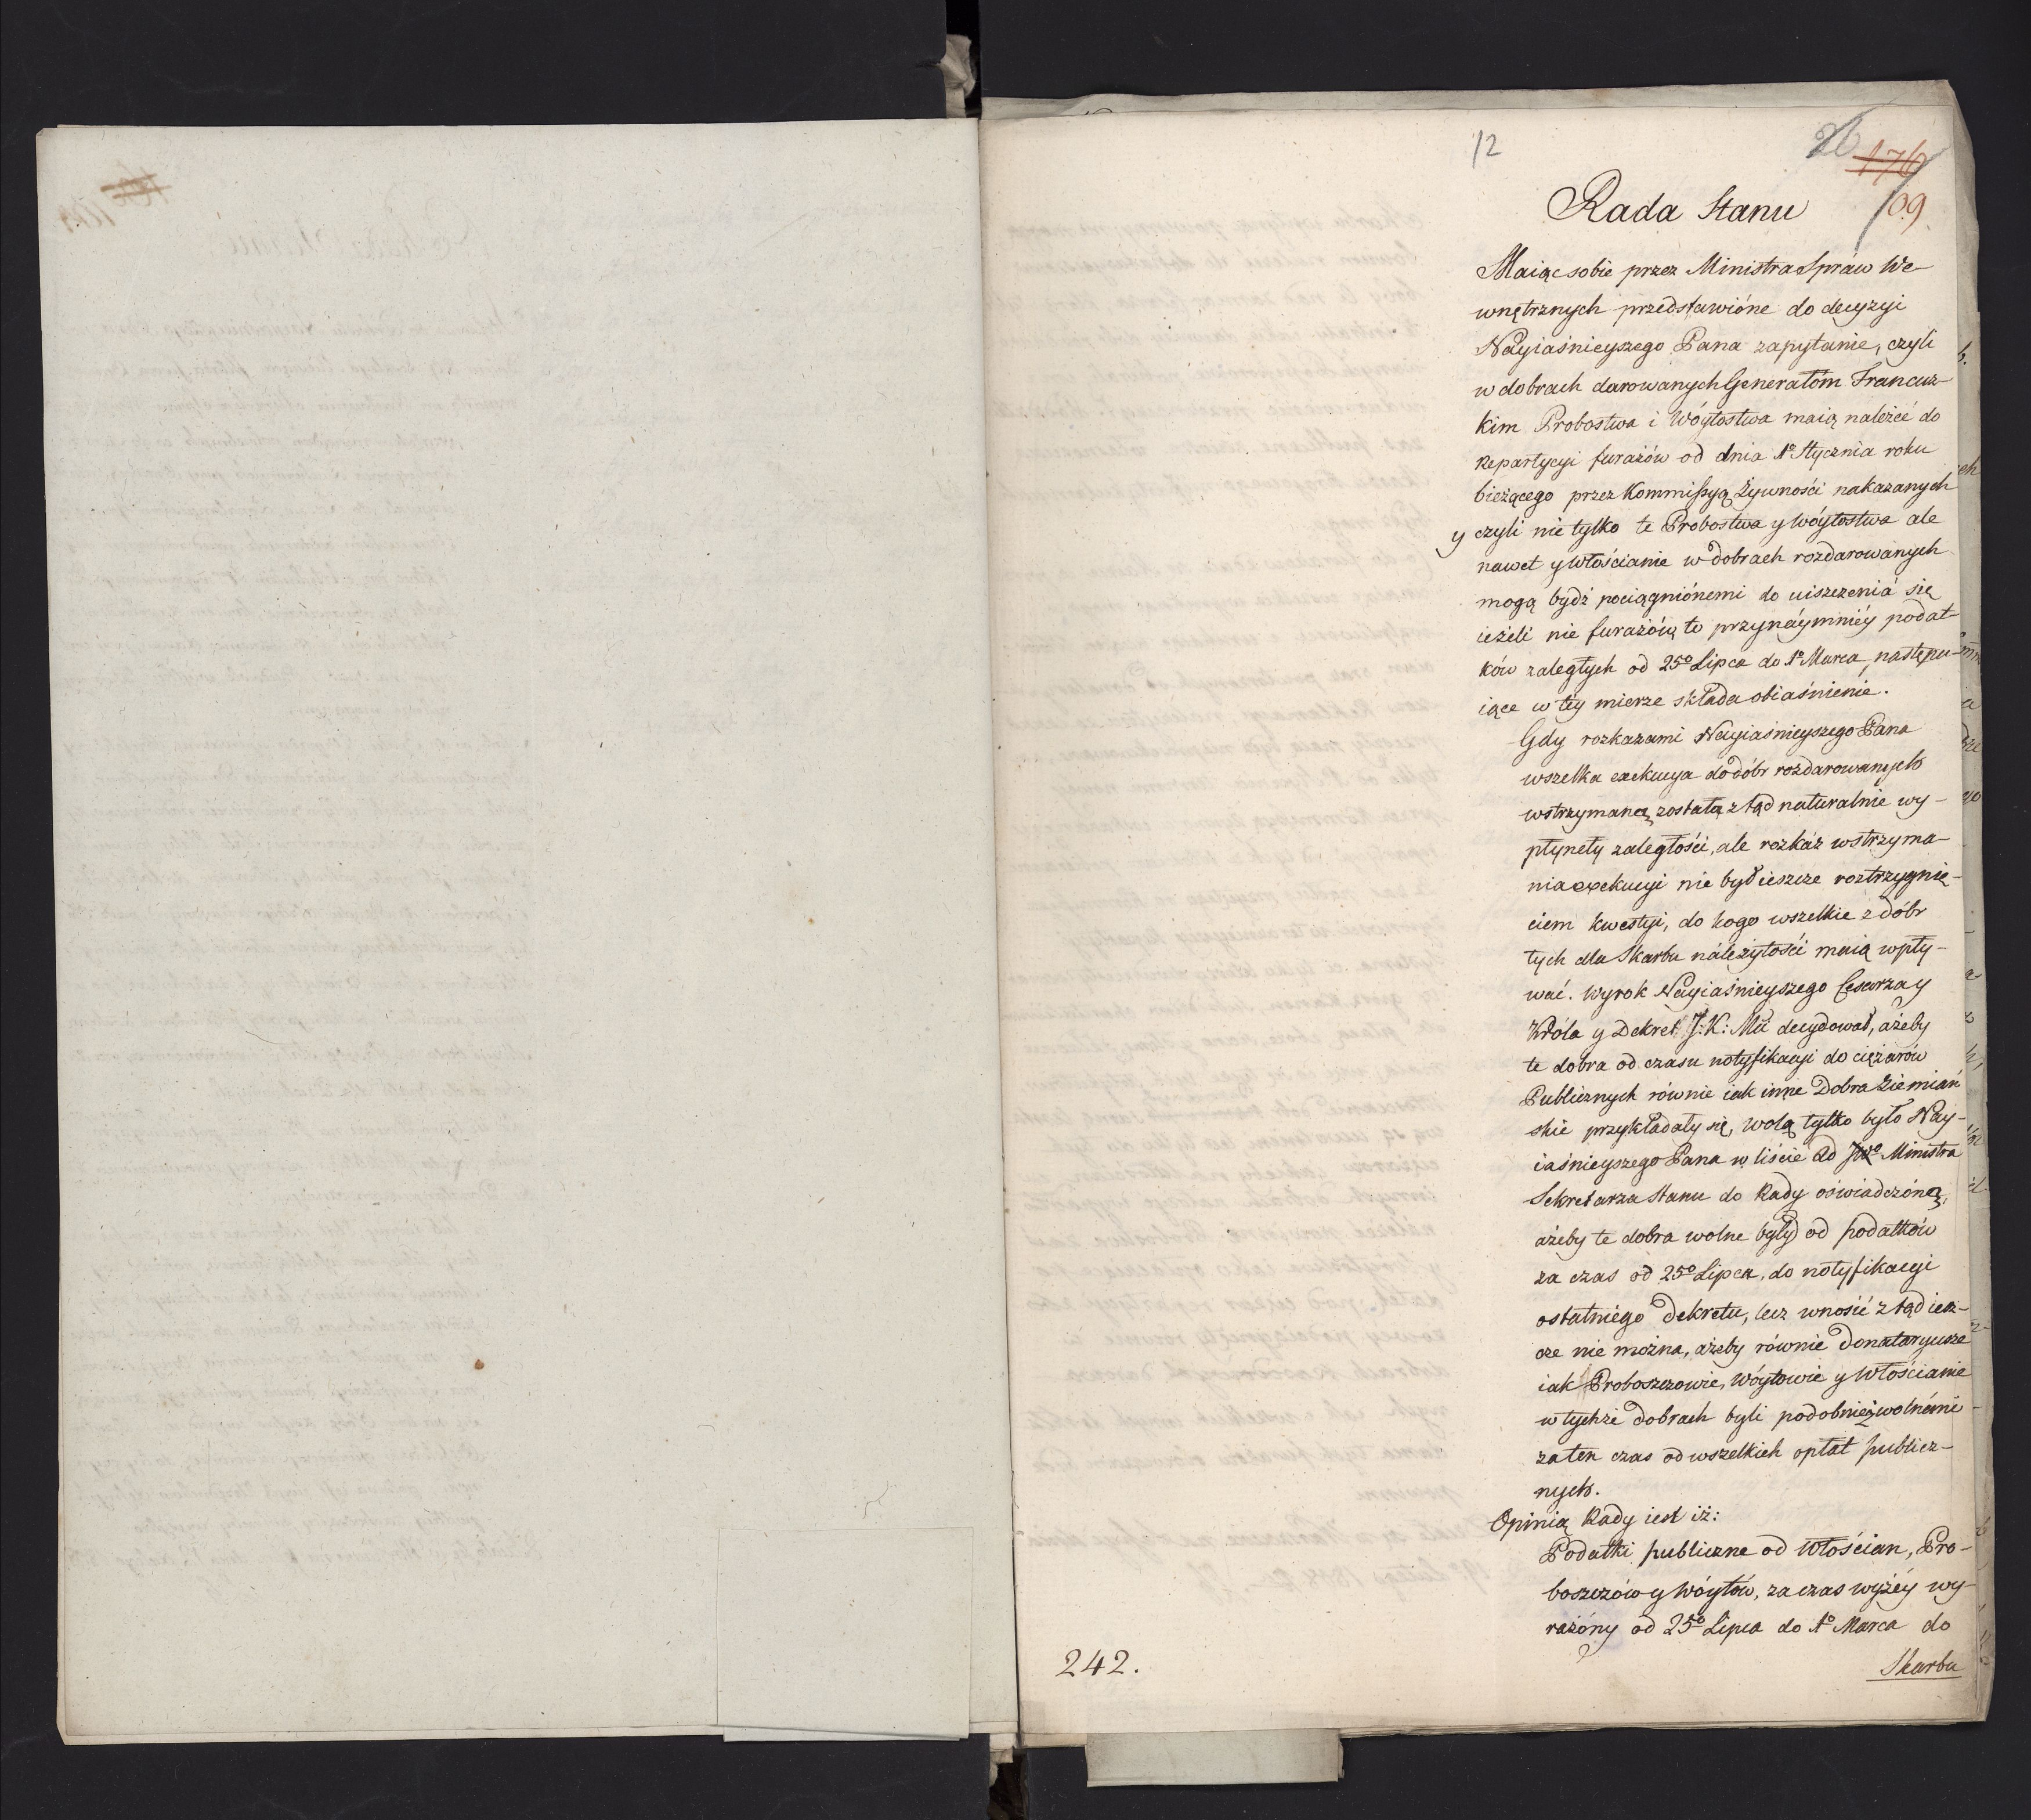 12
26
176
109.
Rada Stanu
Maiąc sobie przez Ministra Spraw We-
wnętrznych przedstawióne do decyzyi
Nayiaśnieyszego Pana zapytanie, czyli
w dobrach darowanych Generałóm Francuz-
kim Probostwa i Wóytostwa maią należeć do
Repartycyi furażów od dnia 1º Stycznia roku
bieżącego przez Kommissyą Żywności nakazanych
y czyli nie tylko te Probostwa y Wóytostwa ale
nawet y Włościanie w dobrach rozdarowanych
mogą bydź pociągniónemi do uiszczenia się
ieżeli nie furażów, to przynáymniéy podat-
ków zaległych od 25º Lipca do 1º Marca, następu-
iące w téy mierze składa obiaśnienie.
Gdy rozkazami Nayiaśnieyszego Pana
wszelka exekucya do dóbr rozdarowanych
wstrzymaną została, ztąd naturalnie wy-
płynęły zaległości, ale rozkaz wstrzyma-
nia exekucyi nie był ieszcze roztrzygnię-
ciem kwestyi, do kogo wszelkie z dóbr
tych dla Skarbu należytości maią wpły-
wać. Wyrok Nayiaśnieyszego Cesarza y
Króla y Dekret J: K: Mci decydował, ażeby
te dobra od czasu notyfikacyi do ciężarów
Publicznych równie iak inne Dobra Ziemiań
skie przykładały się, wolą tylko było Nay-
iaśnieyszego Pana w liście od JWº Ministra
Sekretarza Stanu do Rady oświadczóną,
ażeby te dobra wolne były od podatków
za czas od 25º Lipca, do notyfikacyi
ostatniego Dekretu, lecz wnosić ztąd iesz-
cze nie można, ażeby równie Donataryusze
iak Proboszczowie, Wóytowie y Włościanie
w tychże dobrach byli podobnież wolnémi
za ten czas od wszelkich opłat publicz-
nych.
Opinią Rady iest iż:
Podatki publiczne od Włościan, Pro-
boszczów y Wóytów, za czas wyżéy wy-
rażóny od 25º Lipca do 1º Marca do
Skarbu
242.